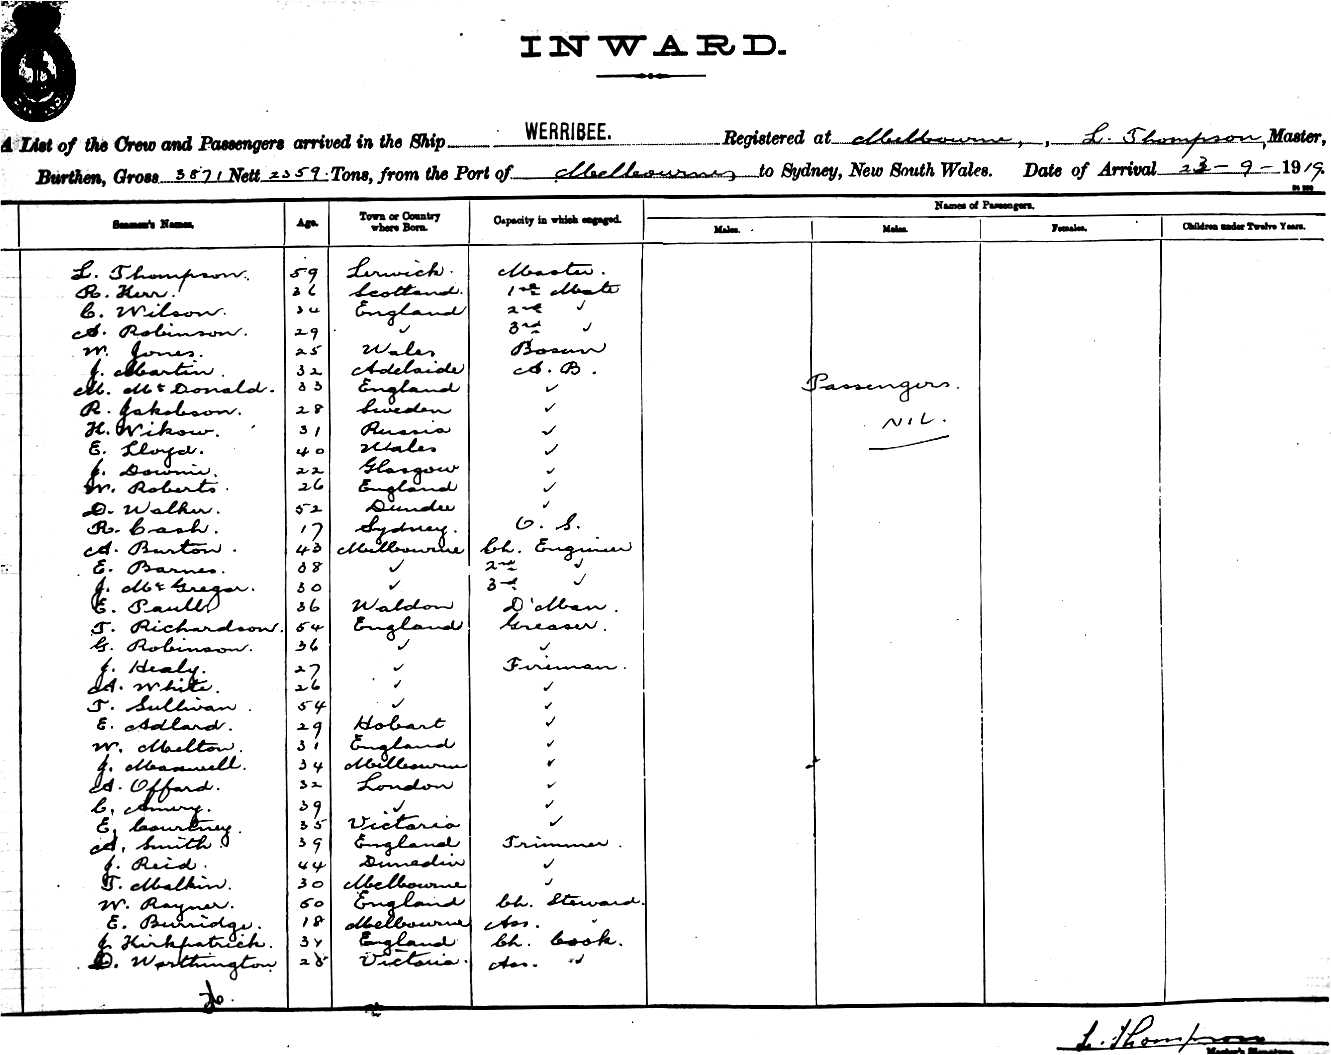 INWARD.
A List of the Crew and Passengers arrived in the Ship WERRIBEE. Registered at Melbourne, , L. Thompson, Master,
Burthen, Gross 3871 Nett 2359 Tons, from the Port of Melbourne to Sydney, New South Wales. Date of Arrival 23-9-1919.
Names of Passengers.
Seamen's Names. Age. Town or Country where Born. Capacity in which engaged. Males. Males. Females. Children under Twelve Years.
L. Thompson. 59 Lerwick. Master.
R. Kerr. 36 Scotland. 1st Mate
C. Wilson. 34 England 2nd ✓
A. Robinson. 29 ✓ 3rd ✓
W. Jones. 25 Wales Bosun
J. Martin. 32 Adelaide A. B.
M. McDonald. 33 England ✓ Passengers.
R. Jakobson. 28 Sweden ✓
H. Wikow. 31 Russia ✓ NIL.
E. Lloyd. 40 Wales ✓
J. Downie. 22 Glasgow ✓
W. Roberts. 26 England ✓
D. Walker. 52 Dundee ✓
R. Cash. 17 Sydney. O. S.
A. Burton. 43 Melbourne Ch. Engineer
E. Barnes. 38 ✓ 2nd ✓
J. McGregor. 30 ✓ 3rd ✓
E. Paull 36 Waldon D'Man.
T. Richardson. 54 England Greaser.
G. Robinson. 36 ✓ ✓
J. Healy. 27 ✓ Fireman.
A. White. 26 ✓ ✓
T. Sullivan. 54 ✓ ✓
E. Adlard. 29 Hobart ✓
W. Melton. 31 England ✓
J. Maxwell. 34 Melbourne ✓
A. Offard. 32 London ✓
C. Amery. 39 ✓ ✓
E. Courtney. 35 Victoria ✓
A. Smith 39 England Trimmer.
J. Reid. 44 Dunedin ✓
T. Malkin. 30 Melbourne ✓
W. Rayner. 50 England Ch. Steward.
E. Burridge. 18 Melbourne Ass. "
J. Kirkpatrick. 34 England Ch. Cook.
D. Worthington 28 Victoria. Ass. "
L. Thompson
Master's Signature